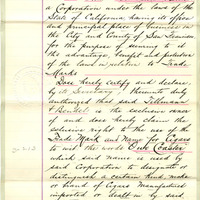 a Corporation under the laws of the
State of California having its office
and principal place of business in
the City and County of San Francisco
for the purpose of securing to it
the advantage, benefit and protection
of the laws in relation to Trade
Marks
Does hereby certify and declare
by its Secretary thereunto duly
authorized that said
& is the exclusive owner
of and does hereby claim the
exclusive right to the use of the
Trade Mark and Name for Cigars
to wit the words
which said name is used by
said Corporation to designate or
distinguish a certain kind, make
or brand of Cigars manufactured
imported or dealt in by said